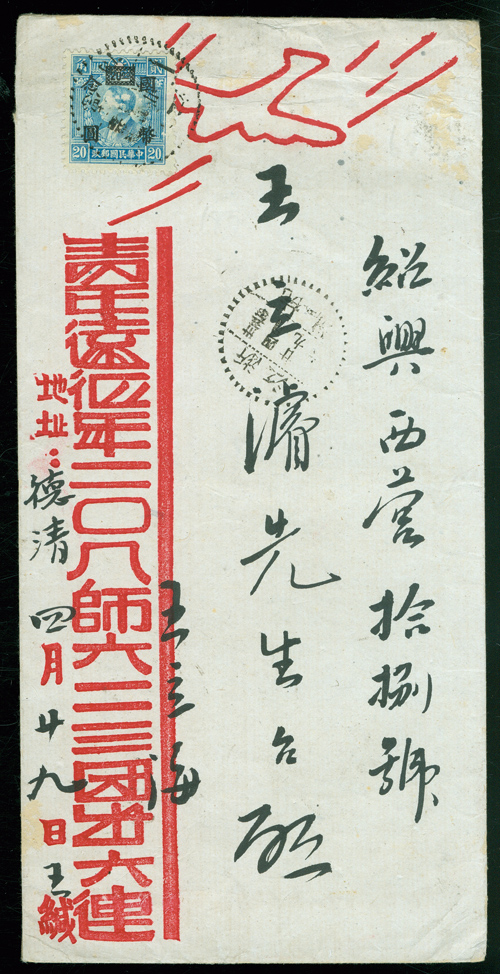 紹興西营拾捌號
王立濬先生台啟
王立海
青年遠征軍二〇八師六二三團六連
地址：德清
四月廿九日王緘
國幣
圓
20 中華民國郵政 20